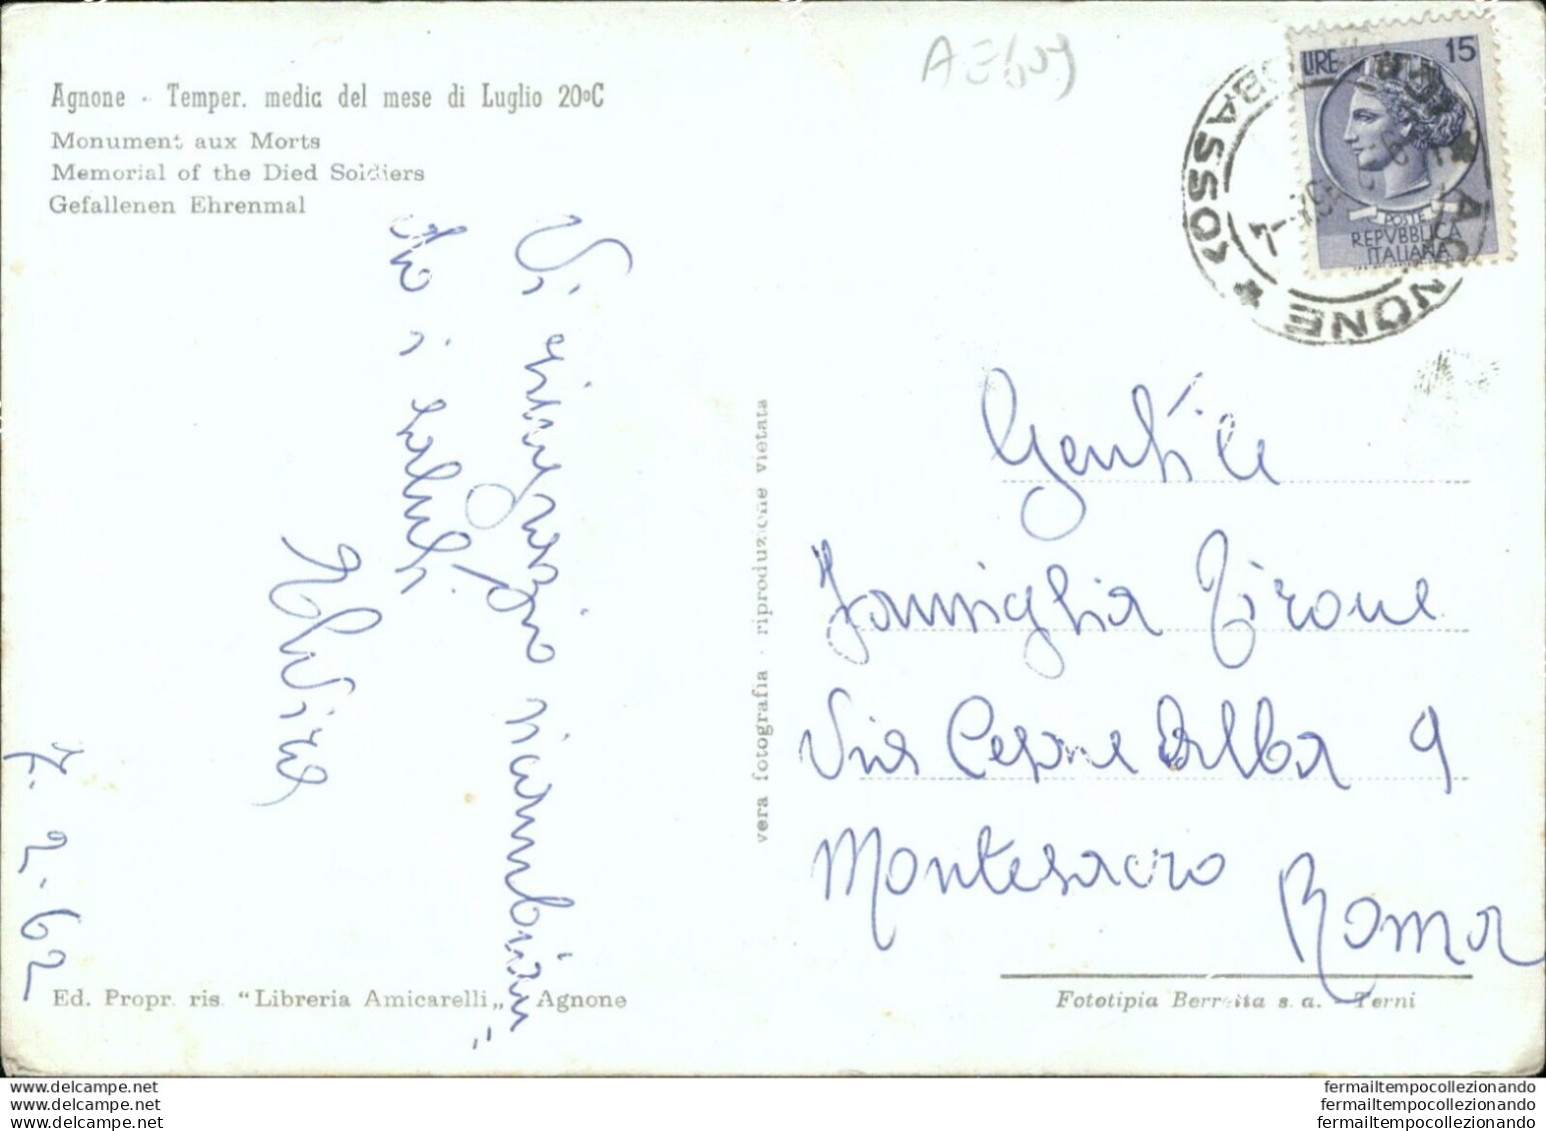 AE609
Agnone - Temper. media del mese di Luglio 20ºC
Monument aux Morts
Memorial of the Died Soldiers
Gefallenen Ehrenmal
Vi ringrazio ricambian
do i saluti.
Elvira
7. 2. 62
vera fotografia - riproduzione vietata
LIRE 15
POSTE
REPVBBLICA
ITALIANA
* AGNONE * (CAMPOBASSO)
Gentile
Famiglia Tirone
Via Cesare Balba 9
Montesacro
Roma
Ed. Propr. ris. "Libreria Amicarelli„ - Agnone
Fototipia Berretta s. a. - Terni
delcampe.net
delcampe.net
delcampe.net
fermailtempocollezionando
fermailtempocollezionando
fermailtempocollezionando